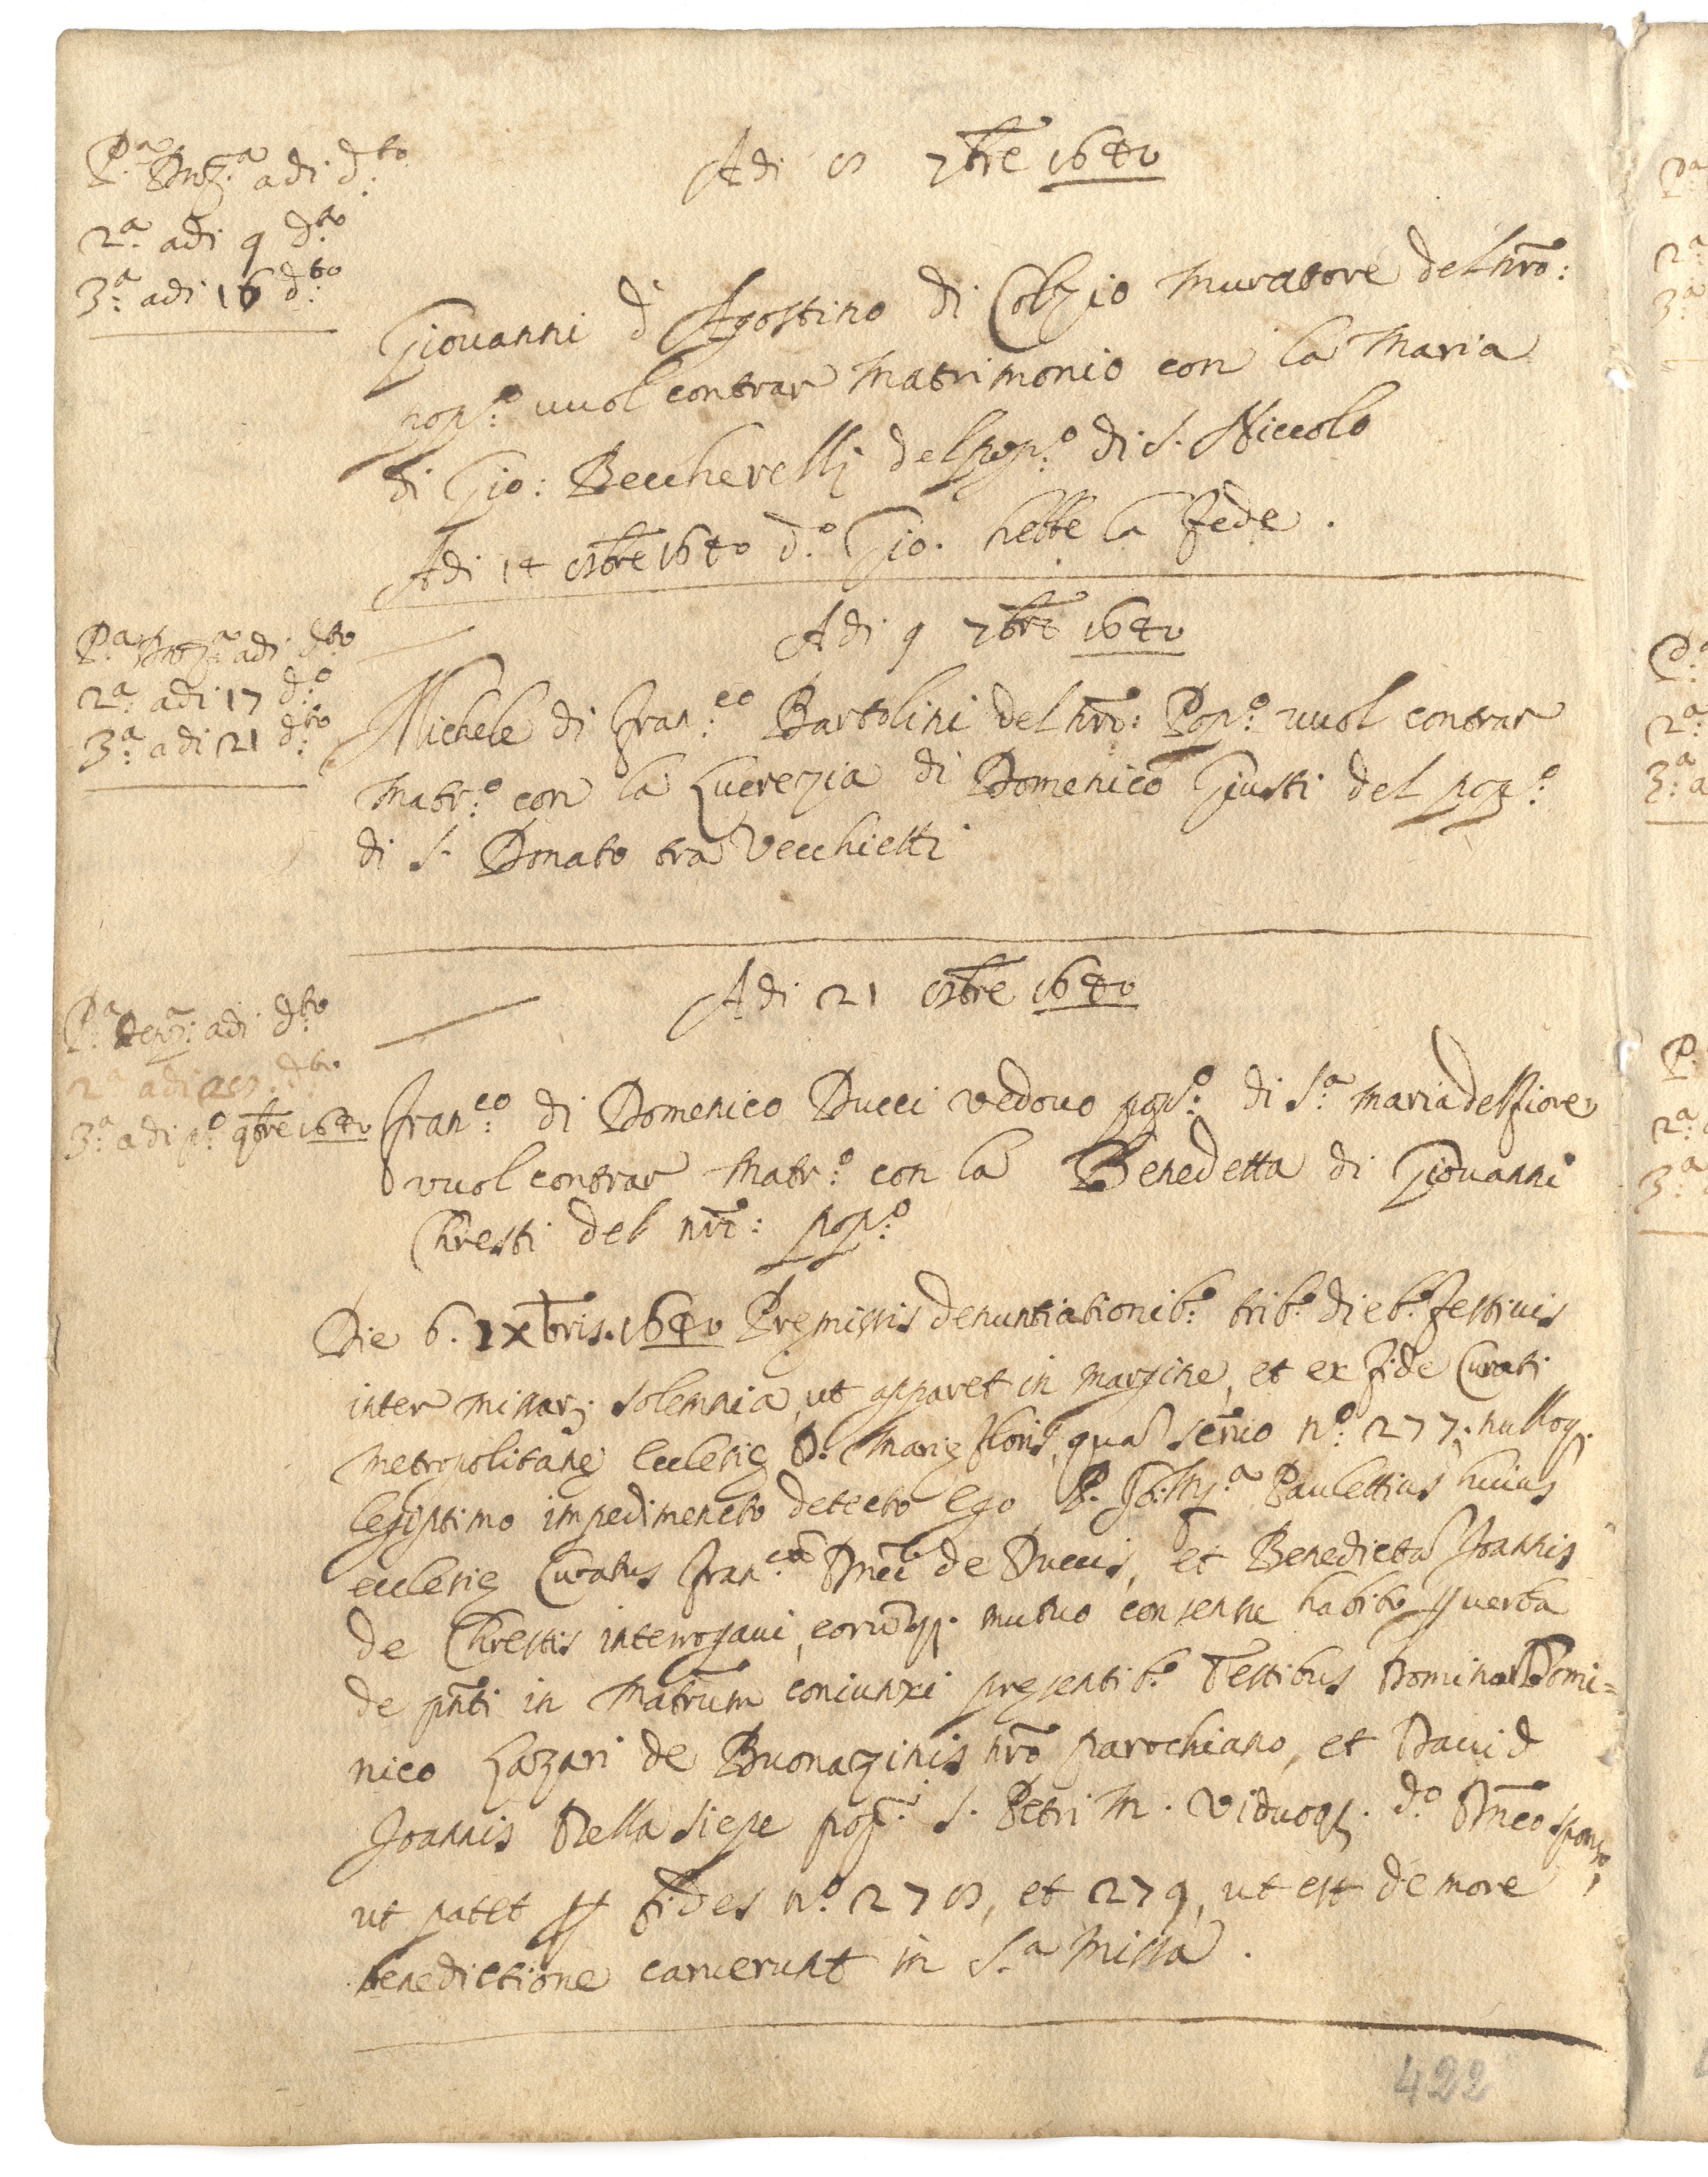 Adi 8 7bre 1640
P.a Dnz.a adi d.to
2.a adi 9 d.to
3.a adi 16 d.to
Giovanni d'Agostino di Colzio muratore del nro:
pop.o vuol contrar matrimonio con la Maria
di Gio: Beccherelli del pop.o di S. Niccolo
Adi 14 8bre 1640 d.o Gio. hebbe la fede.
Adi 9 7bre 1640
P.a Dnz.a adi d.to
2.a adi 17 d.o
3.a adi 21 d.to
Michele di Fran.co Bartolini del nro: Pop.o vuol contrar
Matr.o con la Lucrezia di Domenico Giusti del pop.o
di S. Donato tra Vecchietti
Adi 21 8bre 1640
P.a denz.a: adi d.to
2.a adi 28 d.to
3.a adi p.o 9bre 1640
Fran.co di Domenico Ducci vedovo pop.o di S.a Maria del Fiore
vuol contrar Matr.o con la Benedetta di Giovanni
Chresti del nro: pop.o
Die 6. IXbris. 1640 Premissis denuntiationib.s trib.s dieb.s festivis
inter missarum solemnia, ut apparet in margine, et ex fide Curati
Metropolitane Ecclesie S. Marie Floris, qua servo n.o 277; nulloq.
legiptimo impedimento detecto Ego P. Jo: Bap.a Paulettius huius
ecclesie Curatus Fran.cum Dnici de Duccis, et Benedicta Joannis
de Chrestis interrogavi, eorumq. mutuo consensu habito p verba
de pnti in Matrum coniunxi presentib.s Testibus Domino Domi=
nico Lazari de Buonaginis nro parochiano, et David
Joannis Della Siepe pop. S. Petri M. Viduoq. d.o Dnico sponso,
ut patet p fides n.o 278, et 279, ut est de more
benedictione caruerunt in S.a Missa.
422